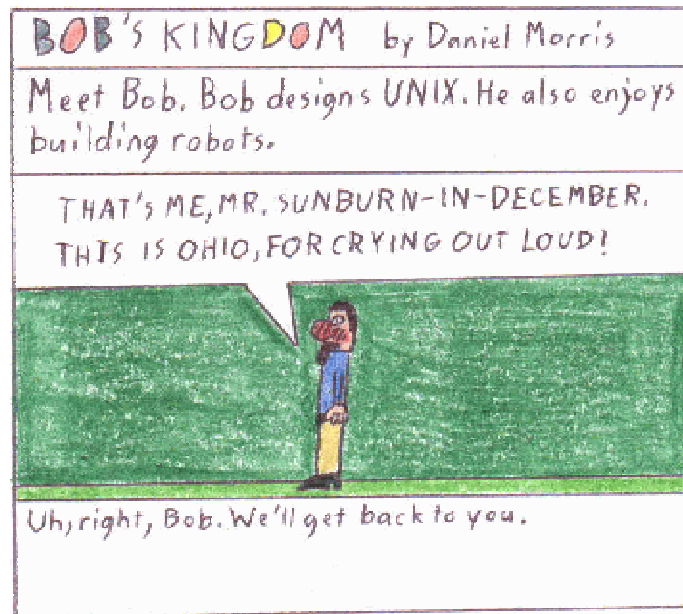 BOB'S KINGDOM by Daniel Morris
Meet Bob. Bob designs UNIX. He also enjoys
building robots.
THAT'S ME, MR. SUNBURN-IN-DECEMBER.
THIS IS OHIO, FOR CRYING OUT LOUD!
Uh, right, Bob. We'll get back to you.